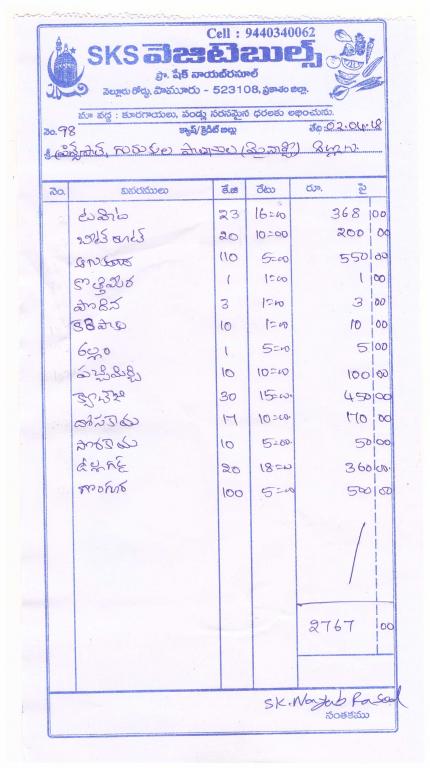 Cell : 9440340062
SKS వెజిటెబుల్స్
ప్రొ. షేక్ నాయబ్‌రసూల్
వెల్లూరు రోడ్డు, పామూరు - 523108, ప్రకాశం జిల్లా.
మా వద్ద : కూరగాయలు, పండ్లు సరసమైన ధరలకు లభించును.
నెం. 98 క్యాష్/క్రెడిట్ బిల్లు తేది 02.04.18
శ్రీ గురుకుల పాఠశాల
నెం. వివరములు కే.జి రేటు రూ. పై
టమోట 23 16=00 368 00
బీట్ రూట్ 20 10=00 200 00
110 5=00 550 00
కొత్తిమీర 1 1=00 1 00
పొదిన 3 1=00 3 00
కరేపాకు 10 1=00 10 00
అల్లం 1 5=00 5 00
పచ్చిమిర్చి 10 10=00 100 00
క్యాబేజి 30 15=00 450 00
దోసకాయ 17 10=00 170 00
సొరకాయ 10 5=00 50 00
20 18=00 360 00
గోంగూర 100 5=00 500 00
2767 00
SK. Nayab Rasool
సంతకము